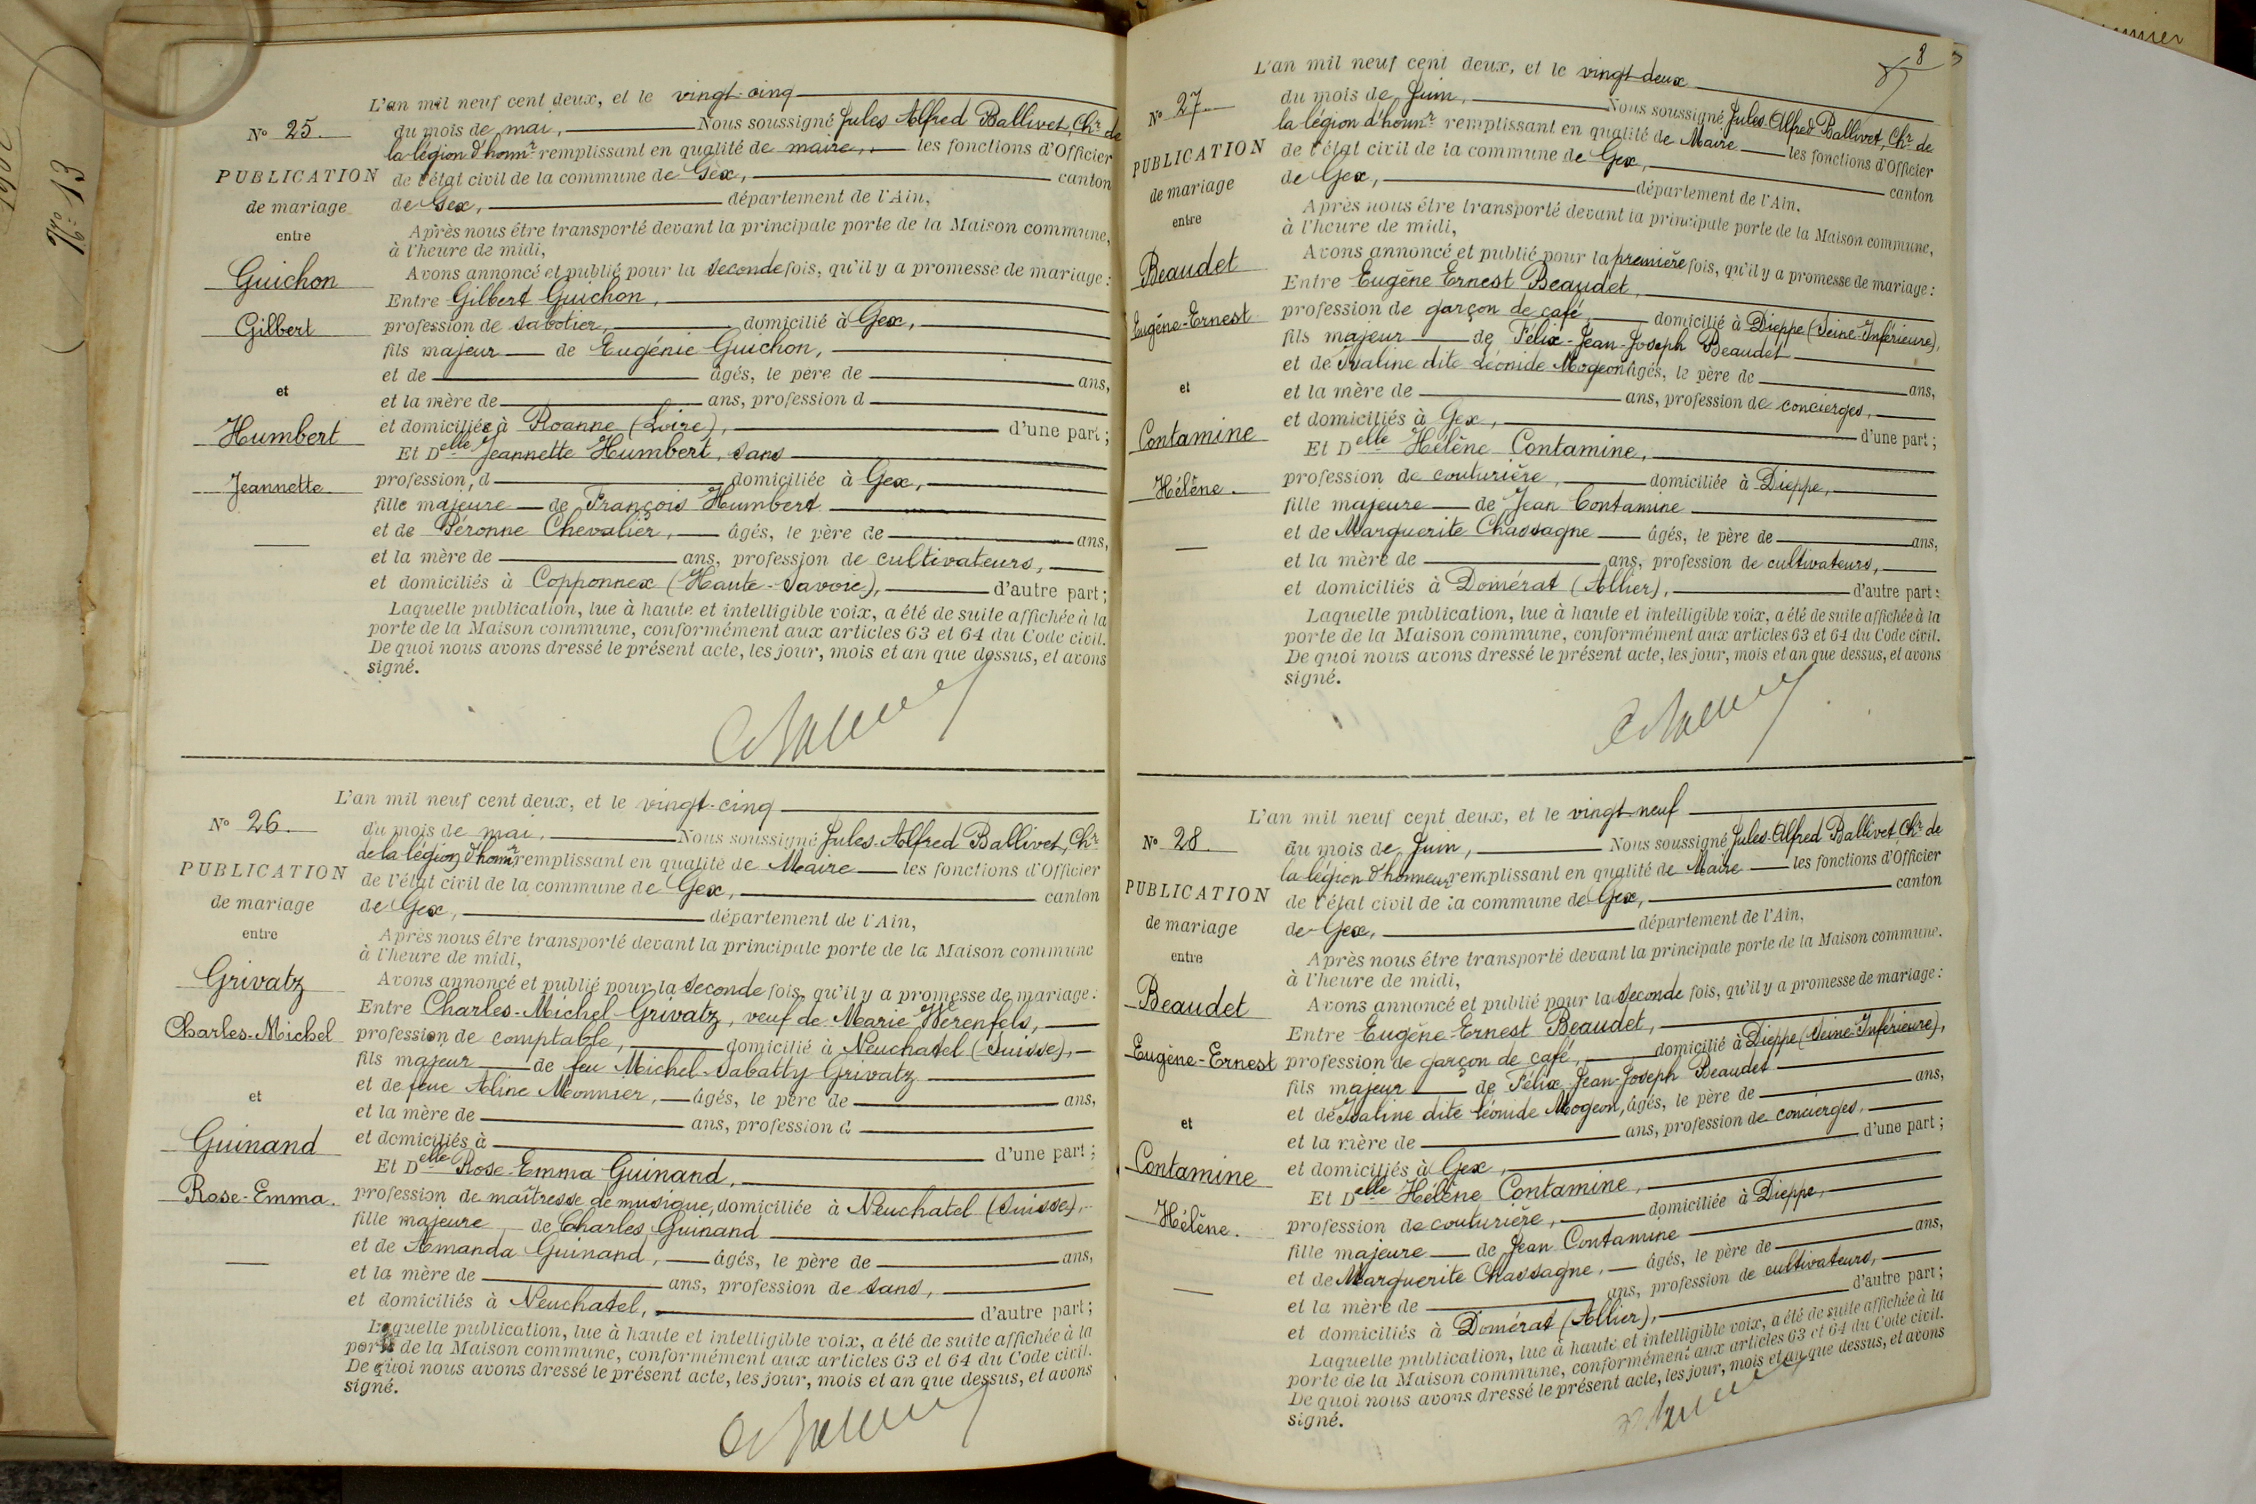 Nº 13
L'an mil neuf cent deux, et le vingt-cinq
Nº 25
du mois de mai, Nous soussigné Jules Alfred Ballivet, Chr de
la légion d'honnr remplissant en qualité de maire, les fonctions d'Officier
PUBLICATION
de l'état civil de la commune de Gex, canton
de mariage
de Gex, département de l'Ain,
entre
Après nous être transporté devant la principale porte de la Maison commune,
à l'heure de midi,
Guichon
Avons annoncé et publié pour la seconde fois, qu'il y a promesse de mariage :
Entre Gilbert Guichon,
Gilbert
profession de sabotier, domicilié à Gex,
fils majeur de Eugénie Guichon,
et de âgés, le père de ans,
et
et la mère de ans, profession d
Humbert
et domiciliée à Roanne (Loire), d'une part ;
Et Delle Jeannette Humbert, sans
Jeannette
profession, d domiciliée à Gex,
fille majeure de François Humbert
et de Péronne Chevalier, âgés, le père de ans,
et la mère de ans, profession de cultivateurs,
et domiciliés à Copponnex (Haute-Savoie), d'autre part ;
Laquelle publication, lue à haute et intelligible voix, a été de suite affichée à la
porte de la Maison commune, conformément aux articles 63 et 64 du Code civil.
De quoi nous avons dressé le présent acte, les jour, mois et an que dessus, et avons
signé.
L'an mil neuf cent deux, et le vingt-cinq
Nº 26.
du mois de mai, Nous soussigné Jules-Alfred Ballivet, Chr
de la légion d'honnr remplissant en qualité de Maire les fonctions d'Officier
PUBLICATION
de l'état civil de la commune de Gex, canton
de mariage
de Gex, département de l'Ain,
entre
Après nous être transporté devant la principale porte de la Maison commune
à l'heure de midi,
Grivatz
Avons annoncé et publié pour la seconde fois, qu'il y a promesse de mariage :
Entre Charles-Michel Grivatz, veuf de Marie Werenfels,
Charles-Michel
profession de comptable, domicilié à Neuchatel (Suisse),
fils majeur de feu Michel-Sabatty Grivatz
et de feue Aline Monnier, âgés, le père de ans,
et
et la mère de ans, profession d
Guinand
et domiciliés à d'une part ;
Et Delle Rose-Emma Guinand,
Rose-Emma.
profession de maîtresse de musique, domiciliée à Neuchatel (Suisse),
fille majeure de Charles Guinand
et de Amanda Guinand, âgés, le père de ans,
et la mère de ans, profession de sans,
et domiciliés à Neuchatel, d'autre part ;
Laquelle publication, lue à haute et intelligible voix, a été de suite affichée à la
porte de la Maison commune, conformément aux articles 63 et 64 du Code civil.
De quoi nous avons dressé le présent acte, les jour, mois et an que dessus, et avons
signé.
8
L'an mil neuf cent deux, et le vingt-deux
Nº 27
du mois de Juin, Nous soussigné Jules-Alfred Ballivet, Chr de
la légion d'honnr remplissant en qualité de Maire les fonctions d'Officier
PUBLICATION
de l'état civil de la commune de Gex, canton
de mariage
de Gex, département de l'Ain.
entre
Après nous être transporté devant la principale porte de la Maison commune,
à l'heure de midi,
Beaudet
Avons annoncé et publié pour la première fois, qu'il y a promesse de mariage :
Entre Eugène Ernest Beaudet,
Eugène-Ernest
profession de garçon de café, domicilié à Dieppe (Seine-Inférieure),
fils majeur de Félix-Jean-Joseph Beaudet
et de Isaline dite Léonide Mogeon âgés, le père de ans,
et
et la mère de ans, profession de concierges,
Contamine
et domiciliés à Gex, d'une part ;
Et Delle Hélène Contamine,
Hélène.
profession de couturière, domiciliée à Dieppe,
fille majeure de Jean Contamine
et de Marguerite Chassagne âgés, le père de ans,
et la mère de ans, profession de cultivateurs,
et domiciliés à Domérat (Allier), d'autre part :
Laquelle publication, lue à haute et intelligible voix, a été de suite affichée à la
porte de la Maison commune, conformément aux articles 63 et 64 du Code civil.
De quoi nous avons dressé le présent acte, les jour, mois et an que dessus, et avons
signé.
L'an mil neuf cent deux, et le vingt-neuf
Nº 28.
du mois de Juin, Nous soussigné Jules-Alfred Ballivet Chr de
la légion d'honneur remplissant en qualité de Maire les fonctions d'Officier
PUBLICATION
de l'état civil de la commune de Gex, canton
de mariage
de Gex, département de l'Ain,
entre
Après nous être transporté devant la principale porte de la Maison commune.
à l'heure de midi,
Beaudet
Avons annoncé et publié pour la seconde fois, qu'il y a promesse de mariage :
Entre Eugène-Ernest Beaudet,
Eugène-Ernest
profession de garçon de café, domicilié à Dieppe (Seine-Inférieure),
fils majeur de Félix Jean-Joseph Beaudet
et de Isaline dite Léonide Mogeon, âgés, le père de ans,
et
et la mère de ans, profession de concierges,
Contamine
et domiciliés à Gex, d'une part ;
Et Delle Hélène Contamine,
Hélène.
profession de couturière, domiciliée à Dieppe,
fille majeure de Jean Contamine
et de Marguerite Chassagne, âgés, le père de ans,
et la mère de ans, profession de cultivateurs,
et domiciliés à Domérat (Allier), d'autre part ;
Laquelle publication, lue à haute et intelligible voix, a été de suite affichée à la
porte de la Maison commune, conformément aux articles 63 et 64 du Code civil.
De quoi nous avons dressé le présent acte, les jour, mois et an que dessus, et avons
signé.